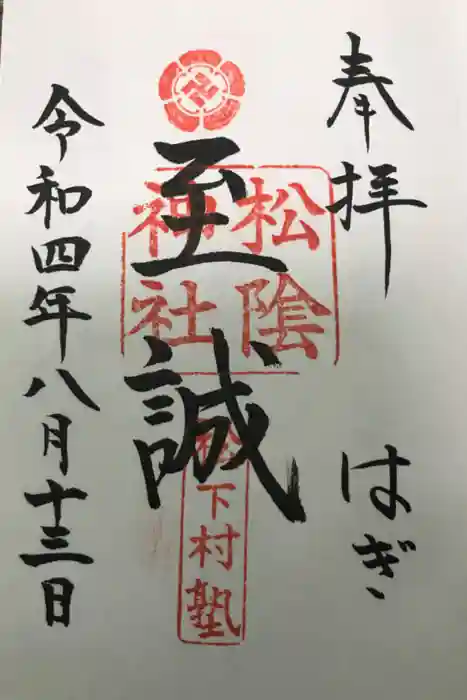 奉拝
はぎ
至誠
松陰
神社
松下村塾
令和四年八月十三日